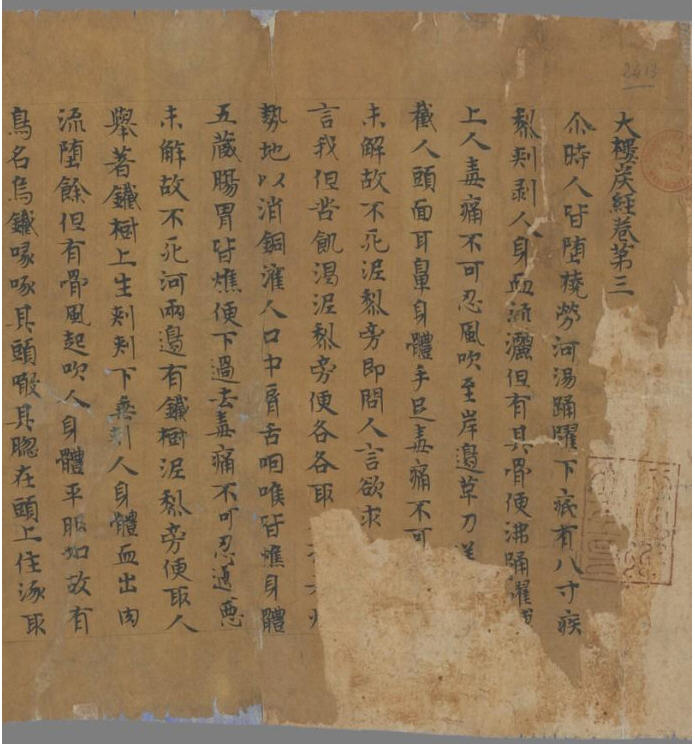 大樓炭經卷第三
尒時人皆墮撓勞河湯踊躍下底有八寸疾
𥟖刾剥人身血流灑但有其骨便沸踊躍
上人毒痛不可忍風吹至岸邊草刀
截人頭面耳鼻身體手足毒痛不可
未解故不死泥𥟖旁即問人言欲求
言我但苦飢渴泥𥟖旁便各各取
勢地以消銅灌人口中脣舌咽喉皆燋身體
五藏腸胃皆燋便下過去毒痛不可忍過惡
未解故不死河兩邊有鐵樹泥𥟖旁便取人
舉著鐵樹上生刾刾下垂刾人身體血出肉
流墮餘但有骨風起吹人身體平服如故有
鳥名烏鐵喙啄其頭噉其𦛁在頭上住啄取
2413